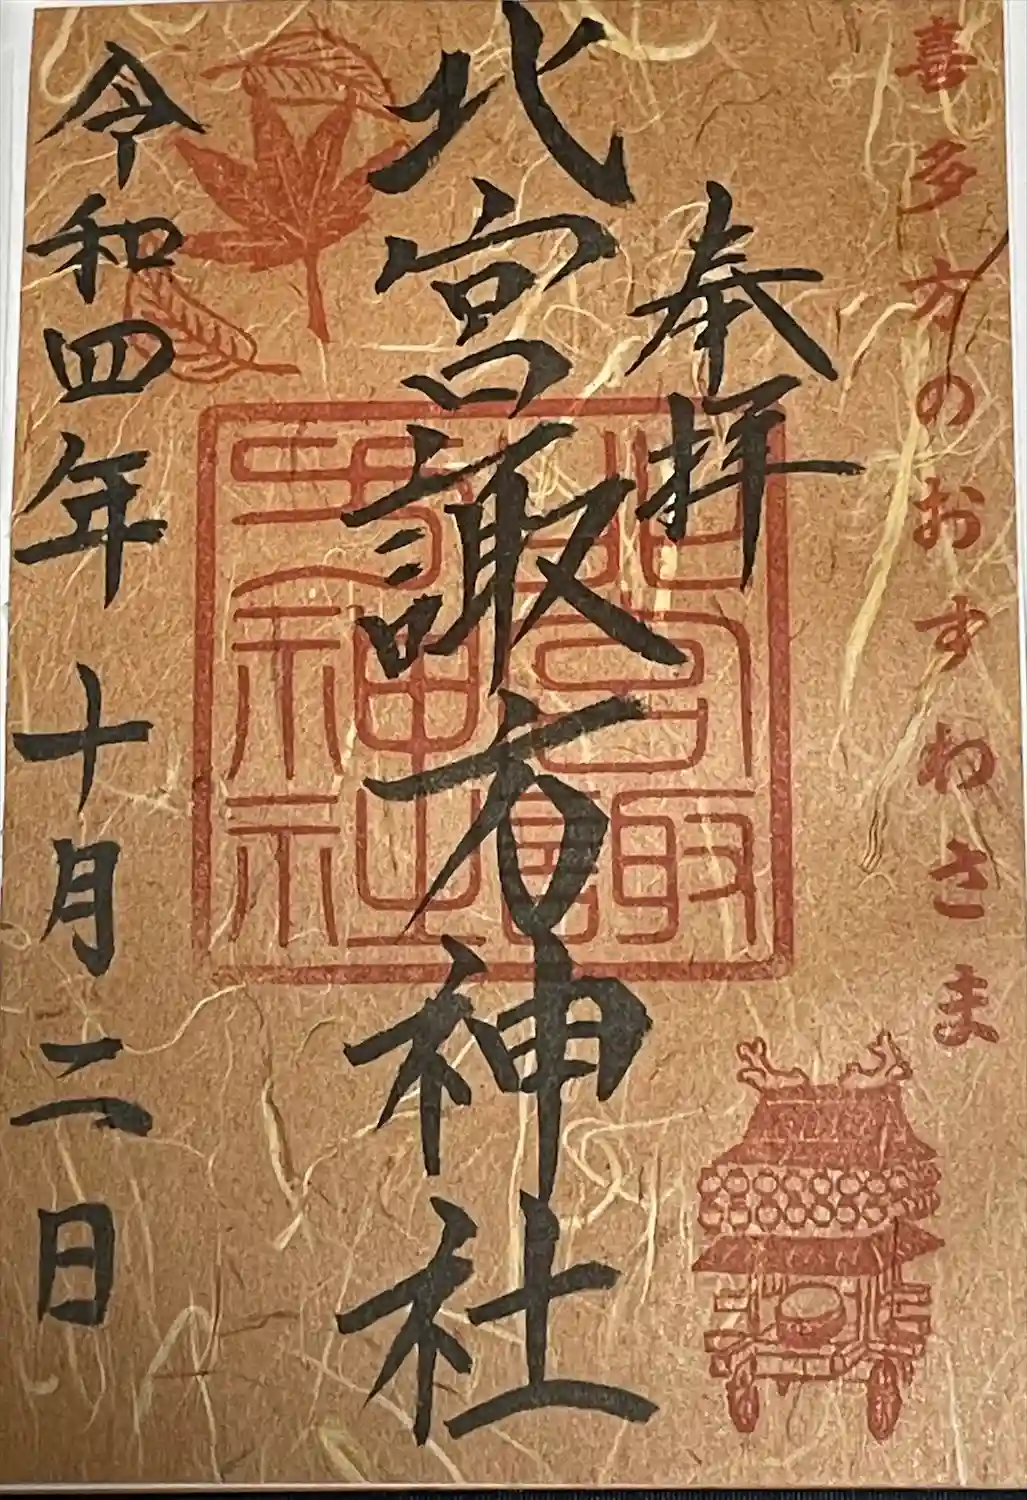 喜多方のおすわさま
奉拝
北宮諏方神社
北宮諏方神社
令和四年十月二日